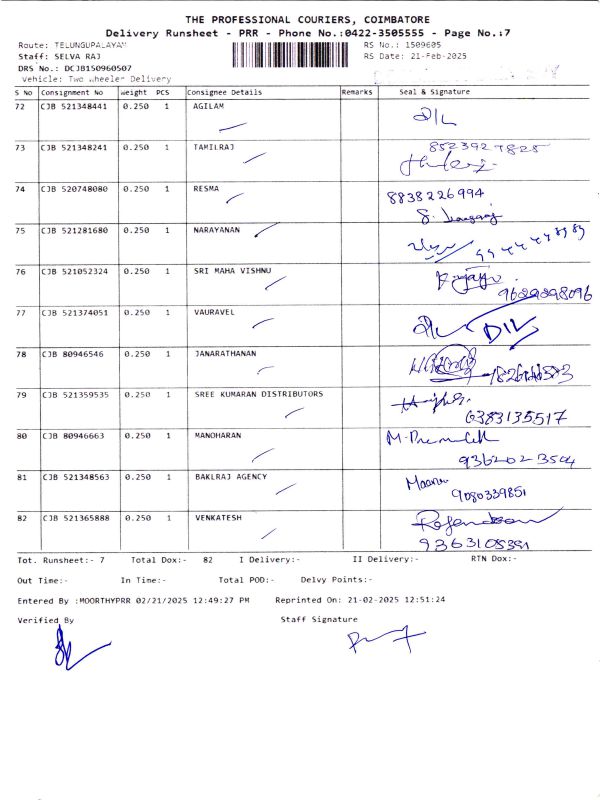 THE PROFESSIONAL COURIERS, COIMBATORE
Delivery Runsheet - PRR - Phone No.:0422-3505555 - Page No.:7
Route: TELUNGUPALAYAM RS No.: 1509605
Staff: SELVA RAJ RS Date: 21-Feb-2025
DRS No.: DCJB150960507
Vehicle: Two Wheeler Delivery
S No Consignment No Weight PCS Consignee Details Remarks Seal & Signature
72 CJB 521348441 0.250 1 AGILAM
73 CJB 521348241 0.250 1 TAMILRAJ
74 CJB 520748080 0.250 1 RESMA 8838226994
75 CJB 521281680 0.250 1 NARAYANAN
76 CJB 521052324 0.250 1 SRI MAHA VISHNU
77 CJB 521374051 0.250 1 VAURAVEL
78 CJB 80946546 0.250 1 JANARATHANAN
79 CJB 521359535 0.250 1 SREE KUMARAN DISTRIBUTORS
6383135517
80 CJB 80946663 0.250 1 MANOHARAN
9362023504
81 CJB 521348563 0.250 1 BAKLRAJ AGENCY
9080339851
82 CJB 521365888 0.250 1 VENKATESH
Tot. Runsheet:- 7 Total Dox:- 82 I Delivery:- II Delivery:- RTN Dox:-
Out Time:- In Time:- Total POD:- Delvy Points:-
Entered By :MOORTHYPRR 02/21/2025 12:49:27 PM Reprinted On: 21-02-2025 12:51:24
Verified By Staff Signature